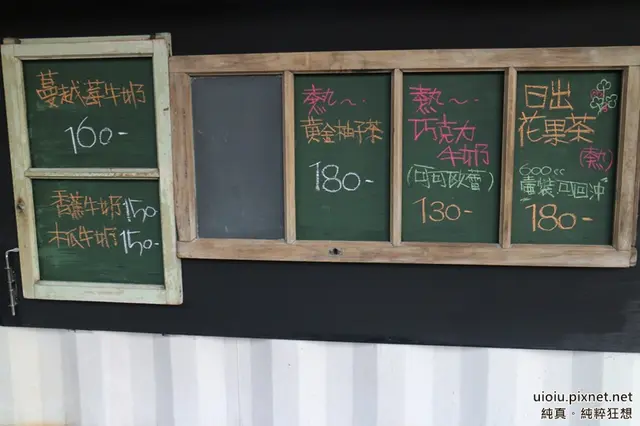 蔓越莓牛奶
160-
香蕉牛奶 150
木瓜牛奶 150-
熱~.
黃金柚子茶
180-
熱~.
巧克力
牛奶
(可可歐蕾)
130-
日出
花果茶
(熱)
600cc
壺裝可回沖
180-
uioiu.pixnet.net
純真。純粹狂想